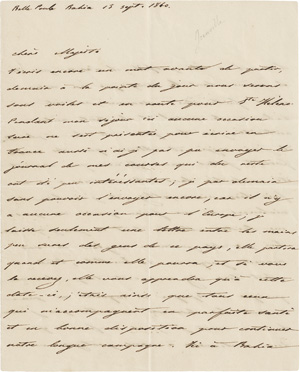 Belle Poule Bahia 15 sept. 1840.
chère Majesté
J'écris encore un mot avant de partir,
demain à la pointe du jour nous serons
sous voiles et en route pour Ste Hélène
Pendant mon séjour ici aucune occasion
ne soit présentée pour écrire en
france aussi n'ai je pas pu envoyer le
journal de mes courses qui du reste
ont été peu intéressantes; je pars demain
sans pouvoir l'envoyer encore, car il n'y
a aucune occasion pour l'Europe; je
laisse seulement une lettre entre les mains
peu sures des gens de ce pays; elle partira
quand et comme elle pourra, et si vous
la recevez, elle vous apprendra qu'à cette
date-ci, j'étais ainsi que tous ceux
qui m'accompagnent en parfaite santé
et en bonne disposition pour continuer
notre longue campagne. Ici à Bahia